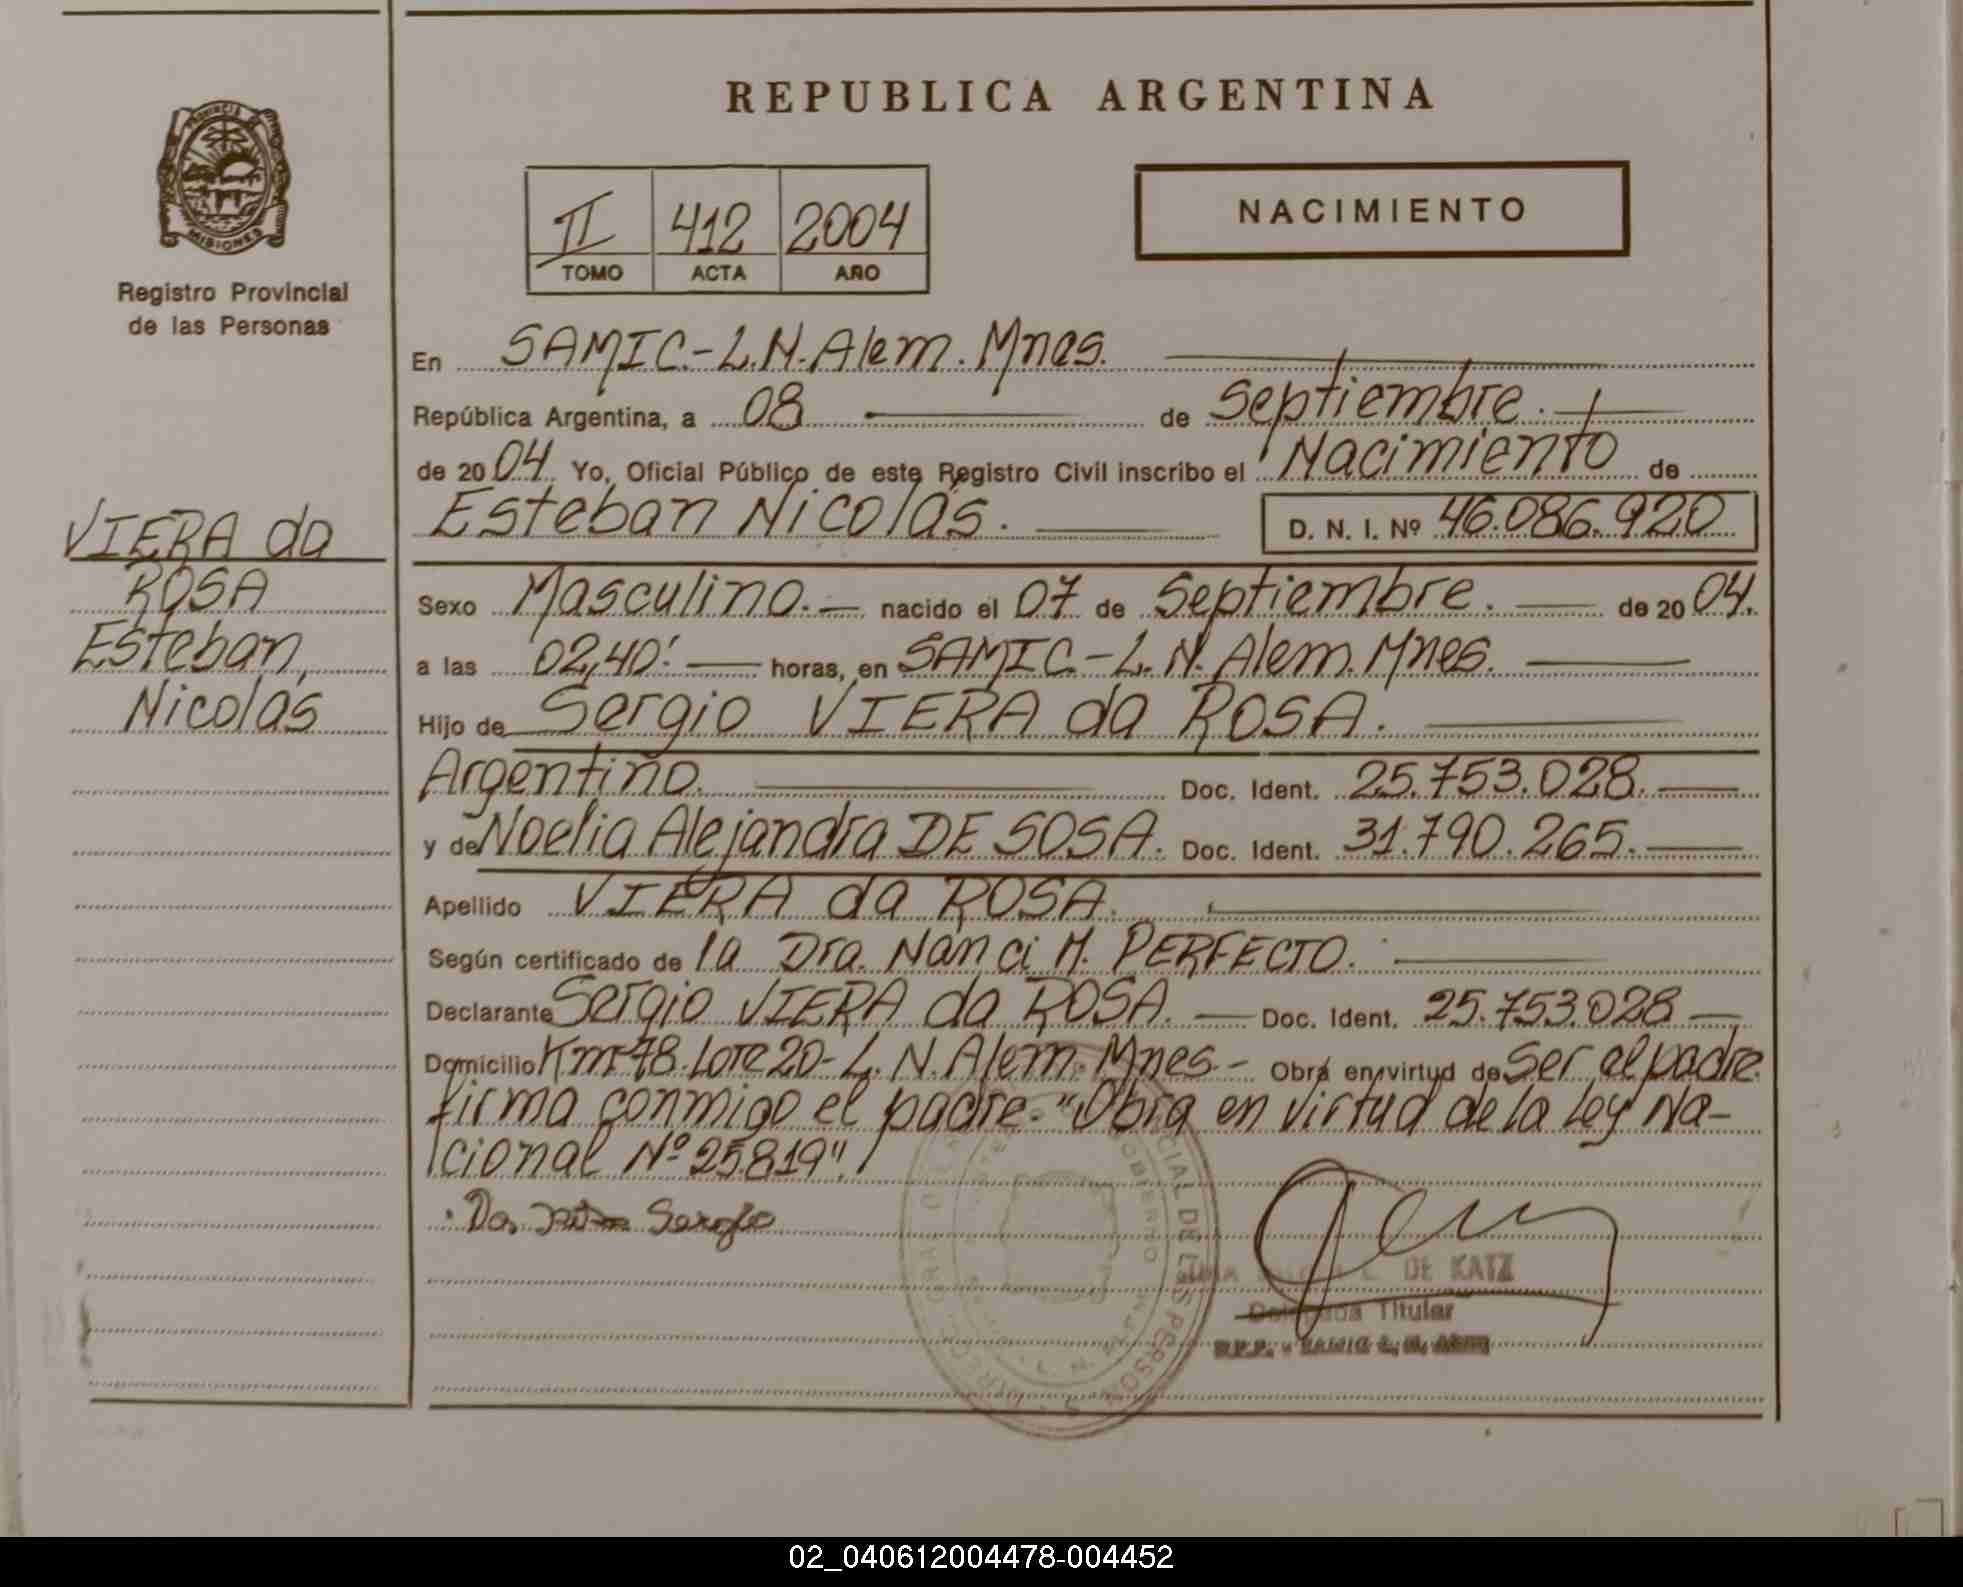 REPUBLICA ARGENTINA
PROVINCIA DE
MISIONES
Registro Provincial
de las Personas
II 412 2004
TOMO ACTA AÑO
NACIMIENTO
En SAMIC.-L.N.Alem. Mnes.
República Argentina, a 08 de Septiembre.
de 20 04. Yo, Oficial Público de este Registro Civil inscribo el Nacimiento de
Esteban Nicolás. D. N. I. Nº 46.086.920
VIERA da
ROSA
Esteban
Nicolás
Sexo Masculino. nacido el 07 de Septiembre. de 20 04.
a las 02,40'. horas, en SAMIC.-L.N.Alem. Mnes.
Hijo de Sergio VIERA da ROSA.
Argentino. Doc. Ident. 25.753.028.
y de Noelia Alejandra DE SOSA. Doc. Ident. 31.790.265.
Apellido VIERA da ROSA.
Según certificado de la Dra. Nanci M. PERFECTO.
Declarante Sergio VIERA da ROSA. Doc. Ident. 25.753.028
Domicilio Km 78. Lote 20- L.N. Alem. Mnes.- Obra en virtud de Ser el padre.
firma conmigo el padre. "Obra en virtud de la Ley Na-
cional Nº 25.819".
Sergio
DE KATZ
Delegada Titular
R.P.P. - SAMIC L. N. ALEM
02_040612004478-004452